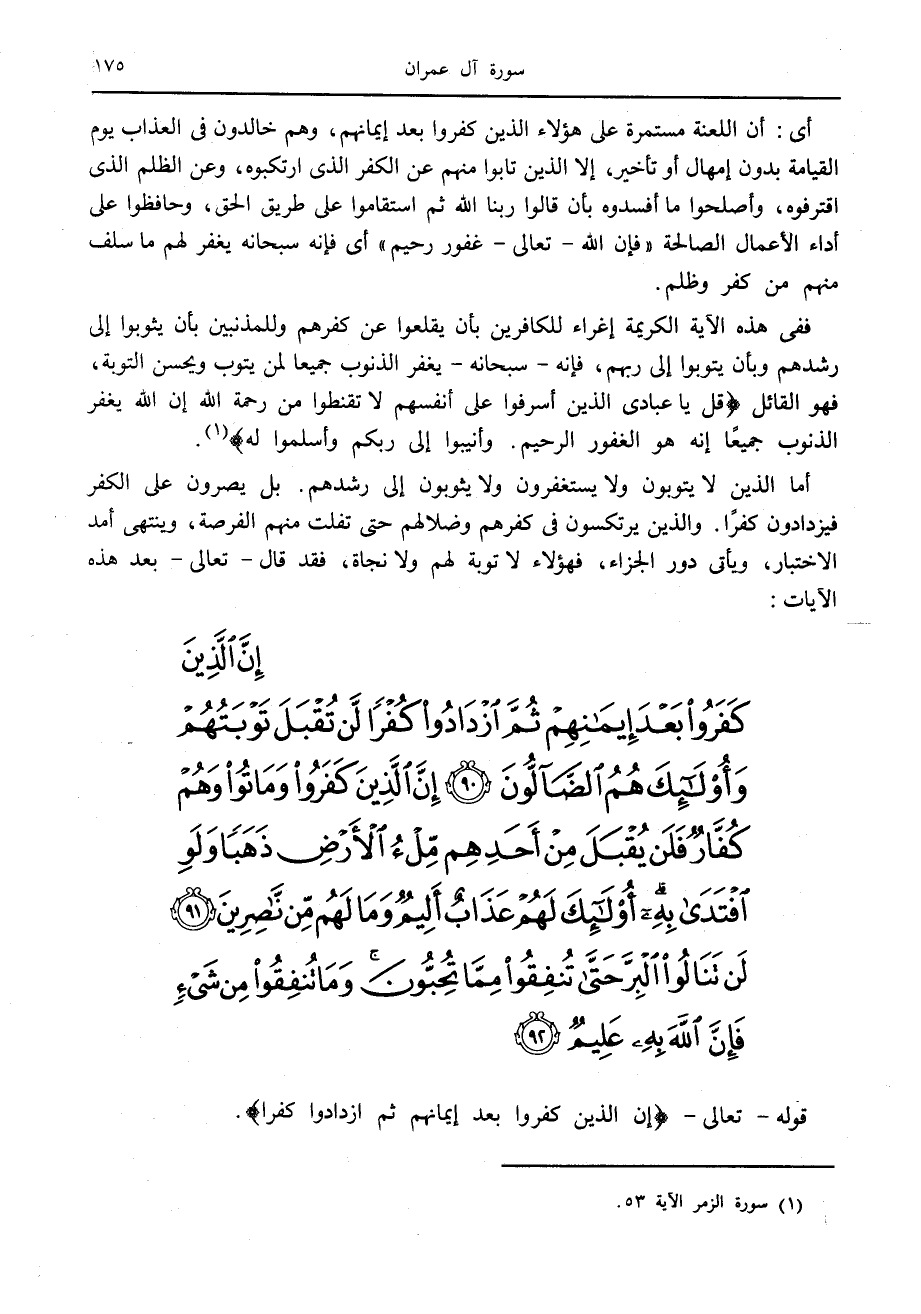 سورة آل عمران ١٧٥
أى : أن اللعنة مستمرة على هؤلاء الذين كفروا بعد إيمانهم، وهم خالدون فى العذاب يوم
القيامة بدون إمهال أو تأخير، إلا الذين تابوا منهم عن الكفر الذى ارتكبوه، وعن الظلم الذى
اقترفوه، وأصلحوا ما أفسدوه بأن قالوا ربنا الله ثم استقاموا على طريق الحق، وحافظوا على
أداء الأعمال الصالحة «فإن الله - تعالى - غفور رحيم» أى فإنه سبحانه يغفر لهم ما سلف
منهم من كفر وظلم.
ففى هذه الآية الكريمة إغراء للكافرين بأن يقلعوا عن كفرهم وللمذنبين بأن يثوبوا إلى
رشدهم وبأن يتوبوا إلى ربهم، فإنه - سبحانه - يغفر الذنوب جميعا لمن يتوب ويحسن التوبة،
فهو القائل ﴿قل يا عبادى الذين أسرفوا على أنفسهم لا تقنطوا من رحمة الله إن الله يغفر
الذنوب جميعًا إنه هو الغفور الرحيم. وأنيبوا إلى ربكم وأسلموا له﴾(١).
أما الذين لا يتوبون ولا يستغفرون ولا يثوبون إلى رشدهم. بل يصرون على الكفر
فيزدادون كفرًا. والذين يرتكسون فى كفرهم وضلالهم حتى تفلت منهم الفرصة، وينتهى أمد
الاختبار، ويأتى دور الجزاء، فهؤلاء لا توبة لهم ولا نجاة، فقد قال - تعالى - بعد هذه
الآيات :
إِنَّ ٱلَّذِينَ
كَفَرُوا۟ بَعْدَ إِيمَـٰنِهِمْ ثُمَّ ٱزْدَادُوا۟ كُفْرًا لَّن تُقْبَلَ تَوْبَتُهُمْ
وَأُو۟لَـٰٓئِكَ هُمُ ٱلضَّآلُّونَ ٩٠ إِنَّ ٱلَّذِينَ كَفَرُوا۟ وَمَاتُوا۟ وَهُمْ
كُفَّارٌ فَلَن يُقْبَلَ مِنْ أَحَدِهِم مِّلْءُ ٱلْأَرْضِ ذَهَبًا وَلَوِ
ٱفْتَدَىٰ بِهِۦٓ ۗ أُو۟لَـٰٓئِكَ لَهُمْ عَذَابٌ أَلِيمٌ وَمَا لَهُم مِّن نَّـٰصِرِينَ ٩١
لَن تَنَالُوا۟ ٱلْبِرَّ حَتَّىٰ تُنفِقُوا۟ مِمَّا تُحِبُّونَ ۚ وَمَا تُنفِقُوا۟ مِن شَىْءٍ
فَإِنَّ ٱللَّهَ بِهِۦ عَلِيمٌ ٩٢
قوله - تعالى - ﴿إن الذين كفروا بعد إيمانهم ثم ازدادوا كفرا﴾.
(١) سورة الزمر الآية ٥٣.